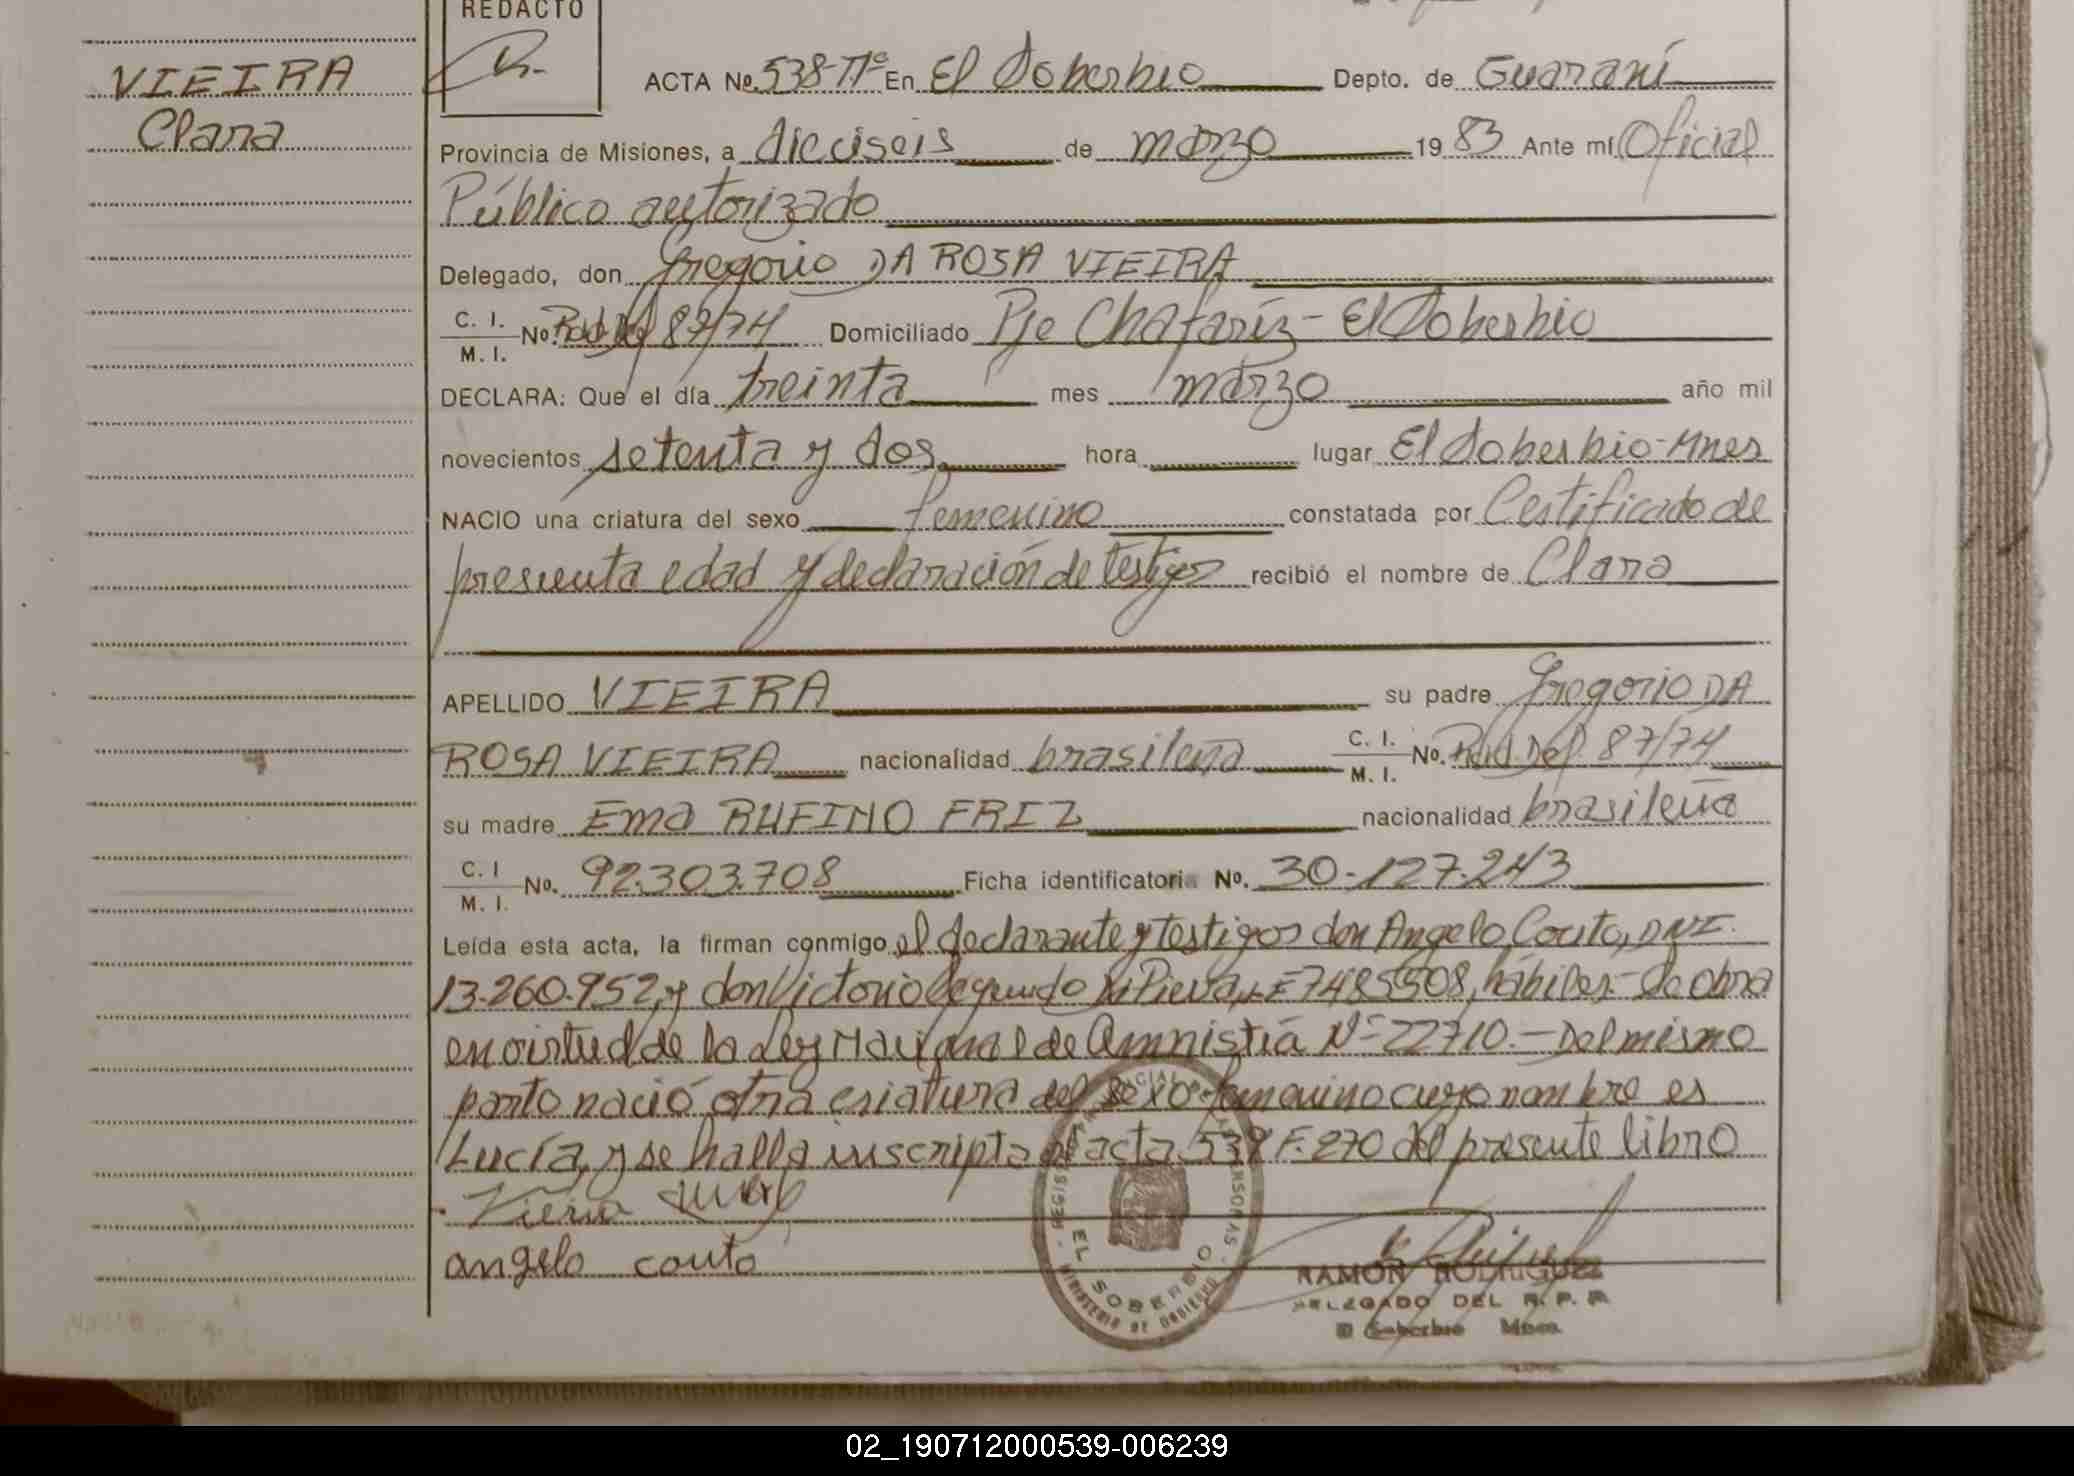 REDACTO
VIEIRA
Clara
ACTA Nº 538-Tº En El Soberbio Depto. de Guaraní
Provincia de Misiones, a dieciseis de marzo 1983 Ante mí Oficial
Público autorizado
Delegado, don Gregorio DA ROSA VIEIRA
C. I. / M. I. No. Rad. Del 87/74 Domiciliado Pje Chafaríz - El Soberbio
DECLARA: Que el día treinta mes marzo año mil
novecientos setenta y dos hora lugar El Soberbio-Mnes
NACIO una criatura del sexo femenino constatada por Certificado de
presunta edad y declaración de testigos recibió el nombre de Clara
APELLIDO VIEIRA su padre Gregorio DA
ROSA VIEIRA nacionalidad brasileña C. I. / M. I. No. Rad. Del. 87/74
su madre Ema RUFINO FRIZ nacionalidad brasileña
C. I / M. I. No. 92.303.708 Ficha identificatoria No. 30-127.243
Leída esta acta, la firman conmigo el declarante y testigos don Angelo Couto, DNI.
13.260.952, y don Victorio Segundo Pieva, LE 7485508, hábiles - Se obra
en virtud de la Ley Nacional de Amnistía Nº 22710.- Del mismo
parto nació otra criatura del sexo femenino cuyo nombre es
Lucía, y se halla inscripta al acta 539 F. 270 del presente libro
Vieira
angelo couto
EL SOBERBIO
MINISTERIO DE GOBIERNO
RAMON RODRIGUEZ
DELEGADO DEL R. P. P.
El Soberbio Mnes.
02_190712000539-006239